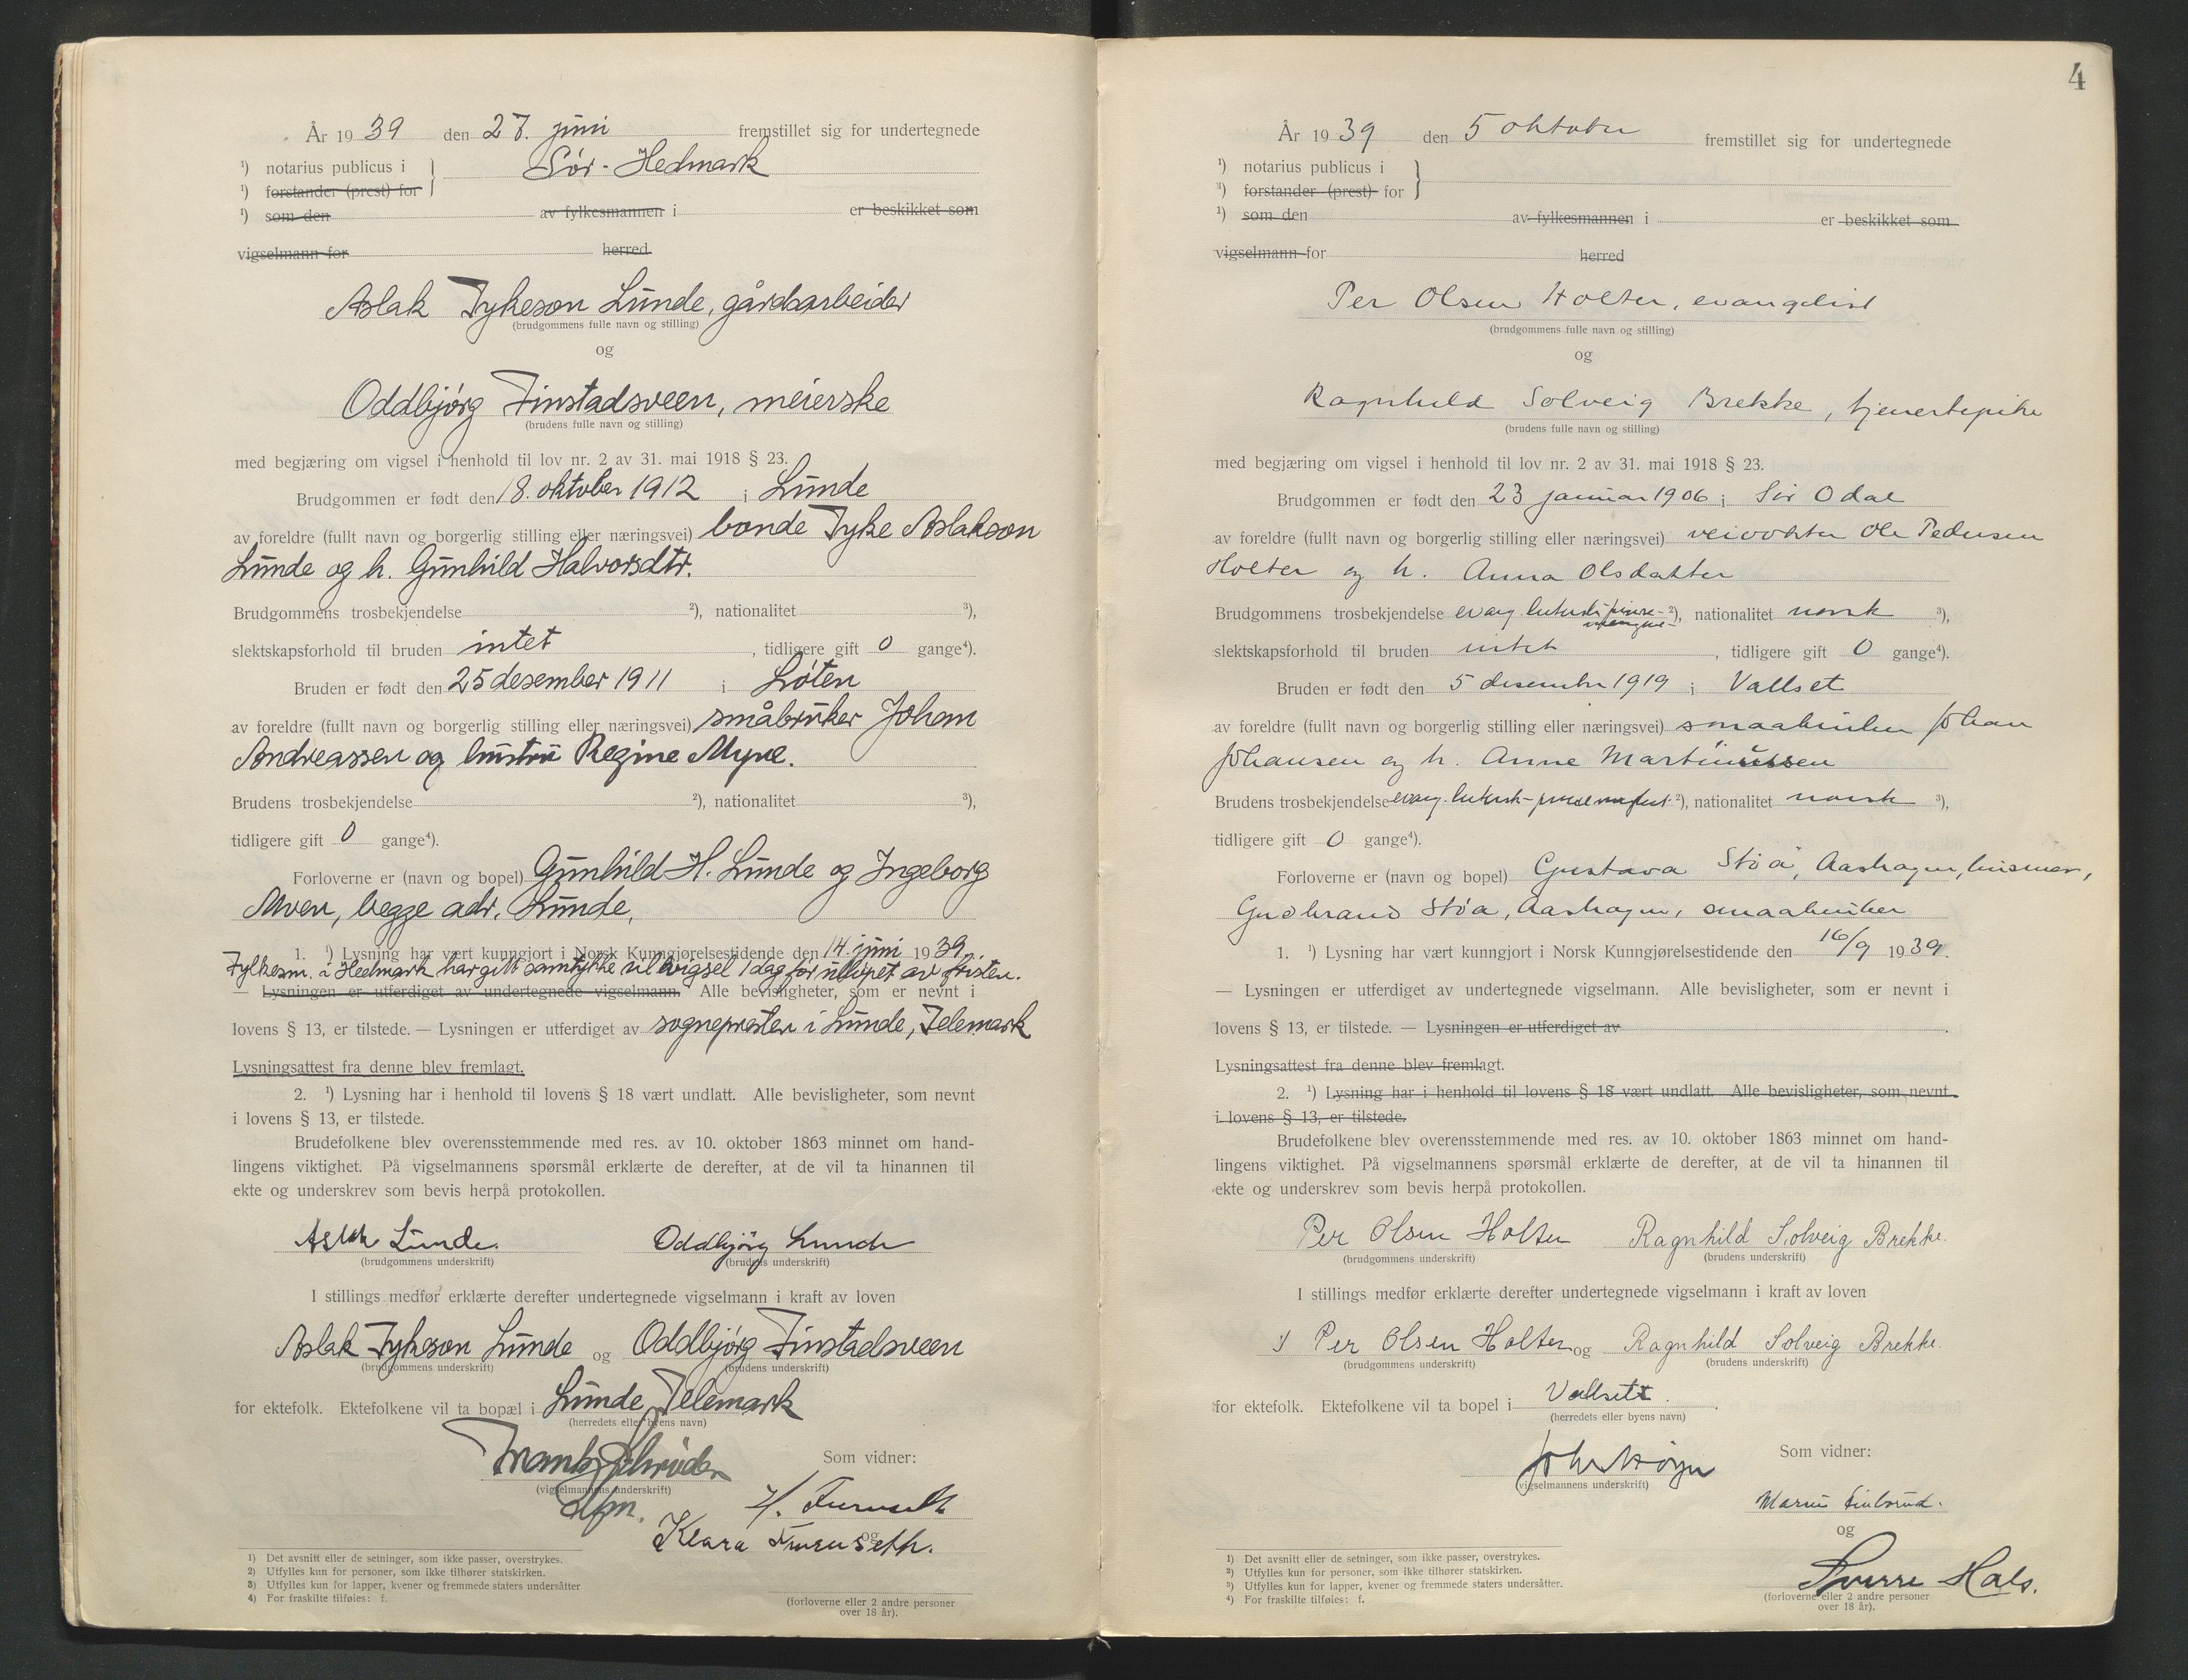 År 1939 den 27. juni fremstillet sig for undertegnede
¹) notarius publicus i } Sør-Hedmark
¹) forstander (prest) for
¹) som den av fylkesmannen i er beskikket som
vigselmann for herred.
Aslak Tykeson Lunde, gårdsarbeider
(brudgommens fulle navn og stilling)
og
Oddbjørg Finstadsveen, meierske
(brudens fulle navn og stilling)
med begjæring om vigsel i henhold til lov nr. 2 av 31. mai 1918 § 23.
Brudgommen er født den 18. oktober 1912 i Lunde
av foreldre (fullt navn og borgerlig stilling eller næringsvei) bonde Tyke Aslakson
Lunde og h. Gunhild Halvorsdtr.
Brudgommens trosbekjendelse ²), nationalitet ³),
slektskapsforhold til bruden intet, tidligere gift 0 gange⁴).
Bruden er født den 25 desember 1911 i Løten
av foreldre (fullt navn og borgerlig stilling eller næringsvei) småbruker Johan
Andreassen og hustru Regine Myre.
Brudens trosbekjendelse ²), nationalitet ³),
tidligere gift 0 gange⁴).
Forloverne er (navn og bopel) Gunhild H. Lunde og Ingeborg
Moen, begge adr. Lunde.
1. ¹) Lysning har vært kunngjort i Norsk Kunngjørelsestidende den 14. juni 1939.
Fylkesm. i Hedmark har gitt samtykke til vigsel 1 dag før utløpet av fristen.
— Lysningen er utferdiget av undertegnede vigselmann. Alle bevisligheter, som er nevnt i
lovens § 13, er tilstede. — Lysningen er utferdiget av sognepresten i Lunde, Telemark
Lysningsattest fra denne blev fremlagt.
2. ¹) Lysning har i henhold til lovens § 18 vært undlatt. Alle bevisligheter, som nevnt
i lovens § 13, er tilstede.
Brudefolkene blev overensstemmende med res. av 10. oktober 1863 minnet om hand-
lingens viktighet. På vigselmannens spørsmål erklærte de derefter, at de vil ta hinannen til
ekte og underskrev som bevis herpå protokollen.
Aslak Lunde. Oddbjørg Lunde
(brudgommens underskrift) (brudens underskrift)
I stillings medfør erklærte derefter undertegnede vigselmann i kraft av loven
Aslak Tykeson Lunde og Oddbjørg Finstadsveen
(brudgommens underskrift) (brudens underskrift)
for ektefolk. Ektefolkene vil ta bopæl i Lunde, Telemark
(herredets eller byens navn)
Som vidner:
(vigselmannens underskrift)
H. Furuseth
og
Klara Furuseth.
¹) Det avsnitt eller de setninger, som ikke passer, overstrykes.
²) Utfylles kun for personer, som ikke tilhører statskirken.
³) Utfylles kun for lapper, kvener og fremmede staters undersåtter
⁴) For fraskilte tilføies: f.
(forloverne eller 2 andre personer
over 18 år).
4
År 1939 den 5 oktober fremstillet sig for undertegnede
¹) notarius publicus i }
¹) forstander (prest) for
¹) som den av fylkesmannen i er beskikket som
vigselmann for herred
Per Olsen Holter, evangelist
(brudgommens fulle navn og stilling)
og
Ragnhild Solveig Brekke, tjenestepike
(brudens fulle navn og stilling)
med begjæring om vigsel i henhold til lov nr. 2 av 31. mai 1918 § 23.
Brudgommen er født den 23 januar 1906 i Sør Odal
av foreldre (fullt navn og borgerlig stilling eller næringsvei) veivokter Ole Pedersen
Holter og h. Anna Olsdatter
Brudgommens trosbekjendelse evang. luthersk pinse- ²), nationalitet norsk ³),
slektskapsforhold til bruden intet, tidligere gift 0 gange⁴).
Bruden er født den 5 desember 1919 i Vallset
av foreldre (fullt navn og borgerlig stilling eller næringsvei) smaabruker Johan
Johansen og h. Anne Martinussen
Brudens trosbekjendelse evang. luthersk- ²), nationalitet norsk ³),
tidligere gift 0 gange⁴).
Forloverne er (navn og bopel) Gustava Støa, Aashagen, husmor,
Gudbrand Støa, Aashagen, smaabruker
1. ¹) Lysning har vært kunngjort i Norsk Kunngjørelsestidende den 16/9 1939.
— Lysningen er utferdiget av undertegnede vigselmann. Alle bevisligheter, som er nevnt i
lovens § 13, er tilstede. — Lysningen er utferdiget av .
Lysningsattest fra denne blev fremlagt.
2. ¹) Lysning har i henhold til lovens § 18 vært undlatt. Alle bevisligheter, som nevnt
i lovens § 13, er tilstede.
Brudefolkene blev overensstemmende med res. av 10. oktober 1863 minnet om hand-
lingens viktighet. På vigselmannens spørsmål erklærte de derefter, at de vil ta hinannen til
ekte og underskrev som bevis herpå protokollen.
Per Olsen Holter Ragnhild Solveig Brekke.
(brudgommens underskrift) (brudens underskrift)
I stillings medfør erklærte derefter undertegnede vigselmann i kraft av loven
Per Olsen Holter og Ragnhild Solveig Brekke.
(brudgommens underskrift) (brudens underskrift)
for ektefolk. Ektefolkene vil ta bopel i Vallset.
(herredets eller byens navn)
Som vidner:
(vigselmannens underskrift)
og
Sverre Hals.
¹) Det avsnitt eller de setninger, som ikke passer, overstrykes.
²) Utfylles kun for personer, som ikke tilhører statskirken.
³) Utfylles kun for lapper, kvener og fremmede staters undersåtter.
⁴) For fraskilte tilføies: f.
(forloverne eller 2 andre personer
over 18 år).